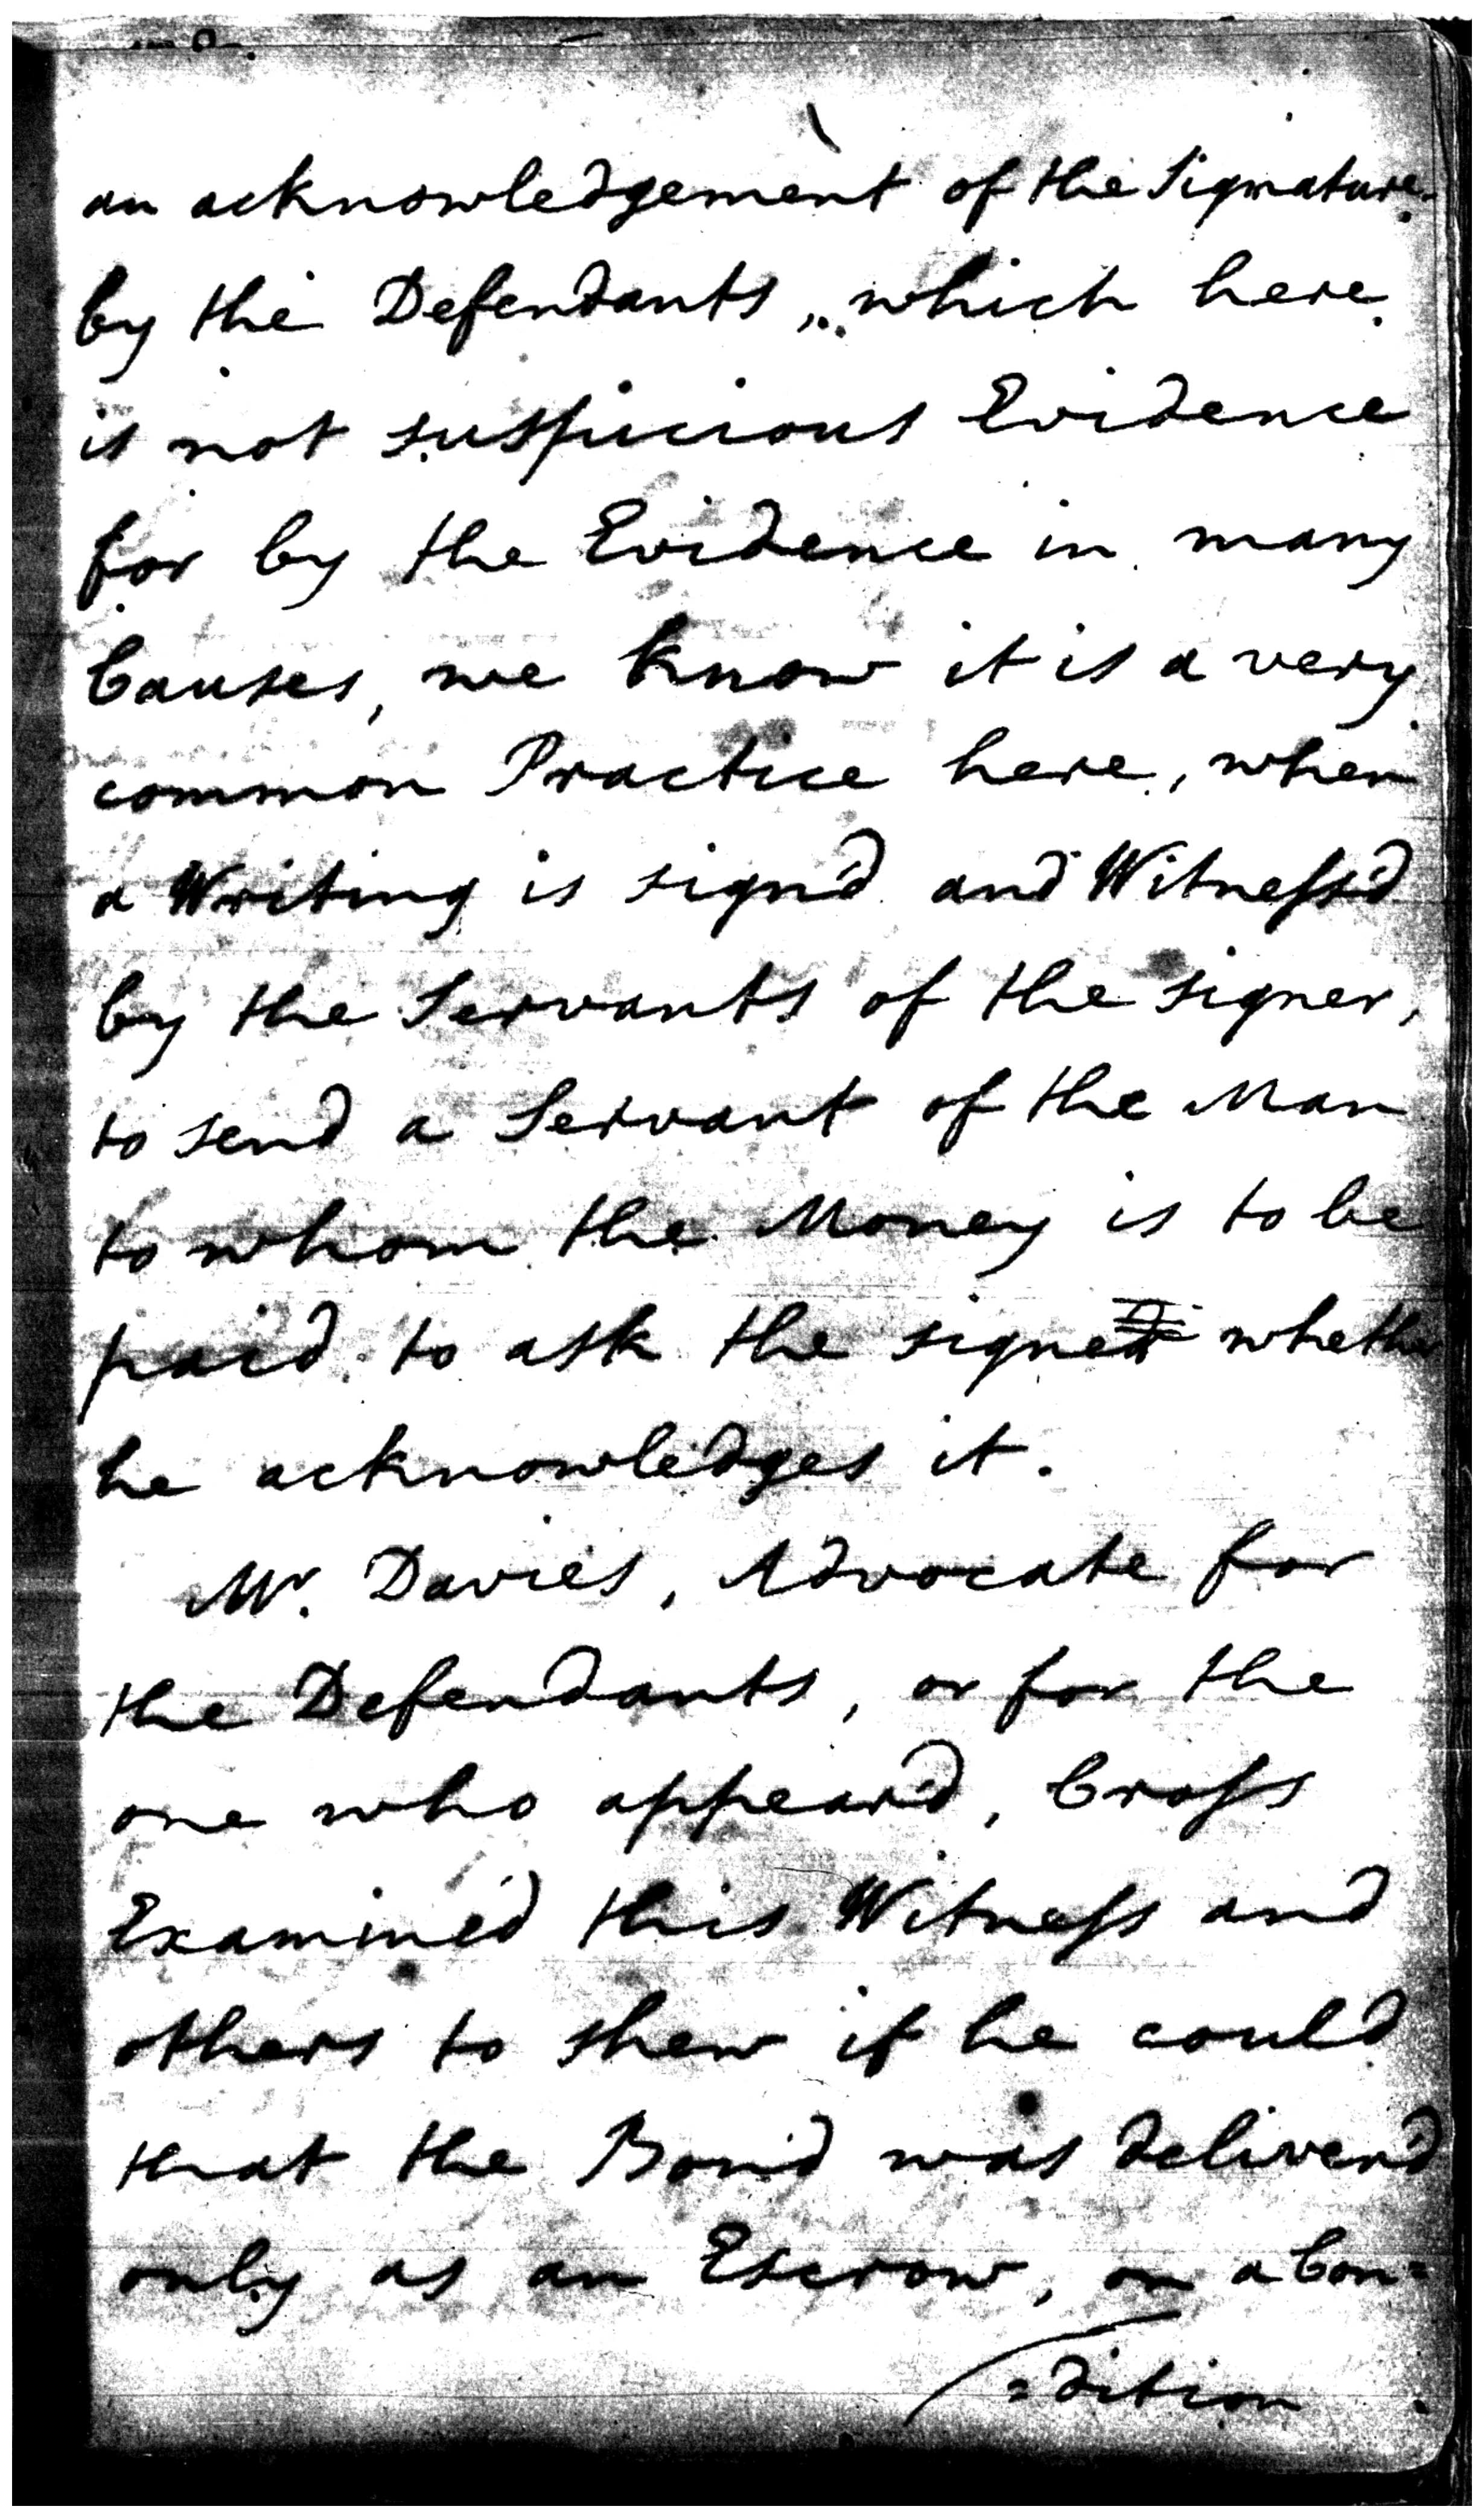 an acknowledgement of the Signature
by the Defendants, which here
is not suspicious Evidence
for by the Evidence in many
Causes, we know it is a very
common Practice here, when
a Writing is sign'd and Witness'd
by the Servants of the signer,
to send a Servant of the Man
to whom the Money is to be
paid to ask the signer whether
he acknowledges it.
Mr. Davies, Advocate for
the Defendants, or for the
one who appear'd, Cross
Examined this Witness and
others to shew if he could
that the Bond was deliver'd
only as an Escrow, on a Con=
=dition